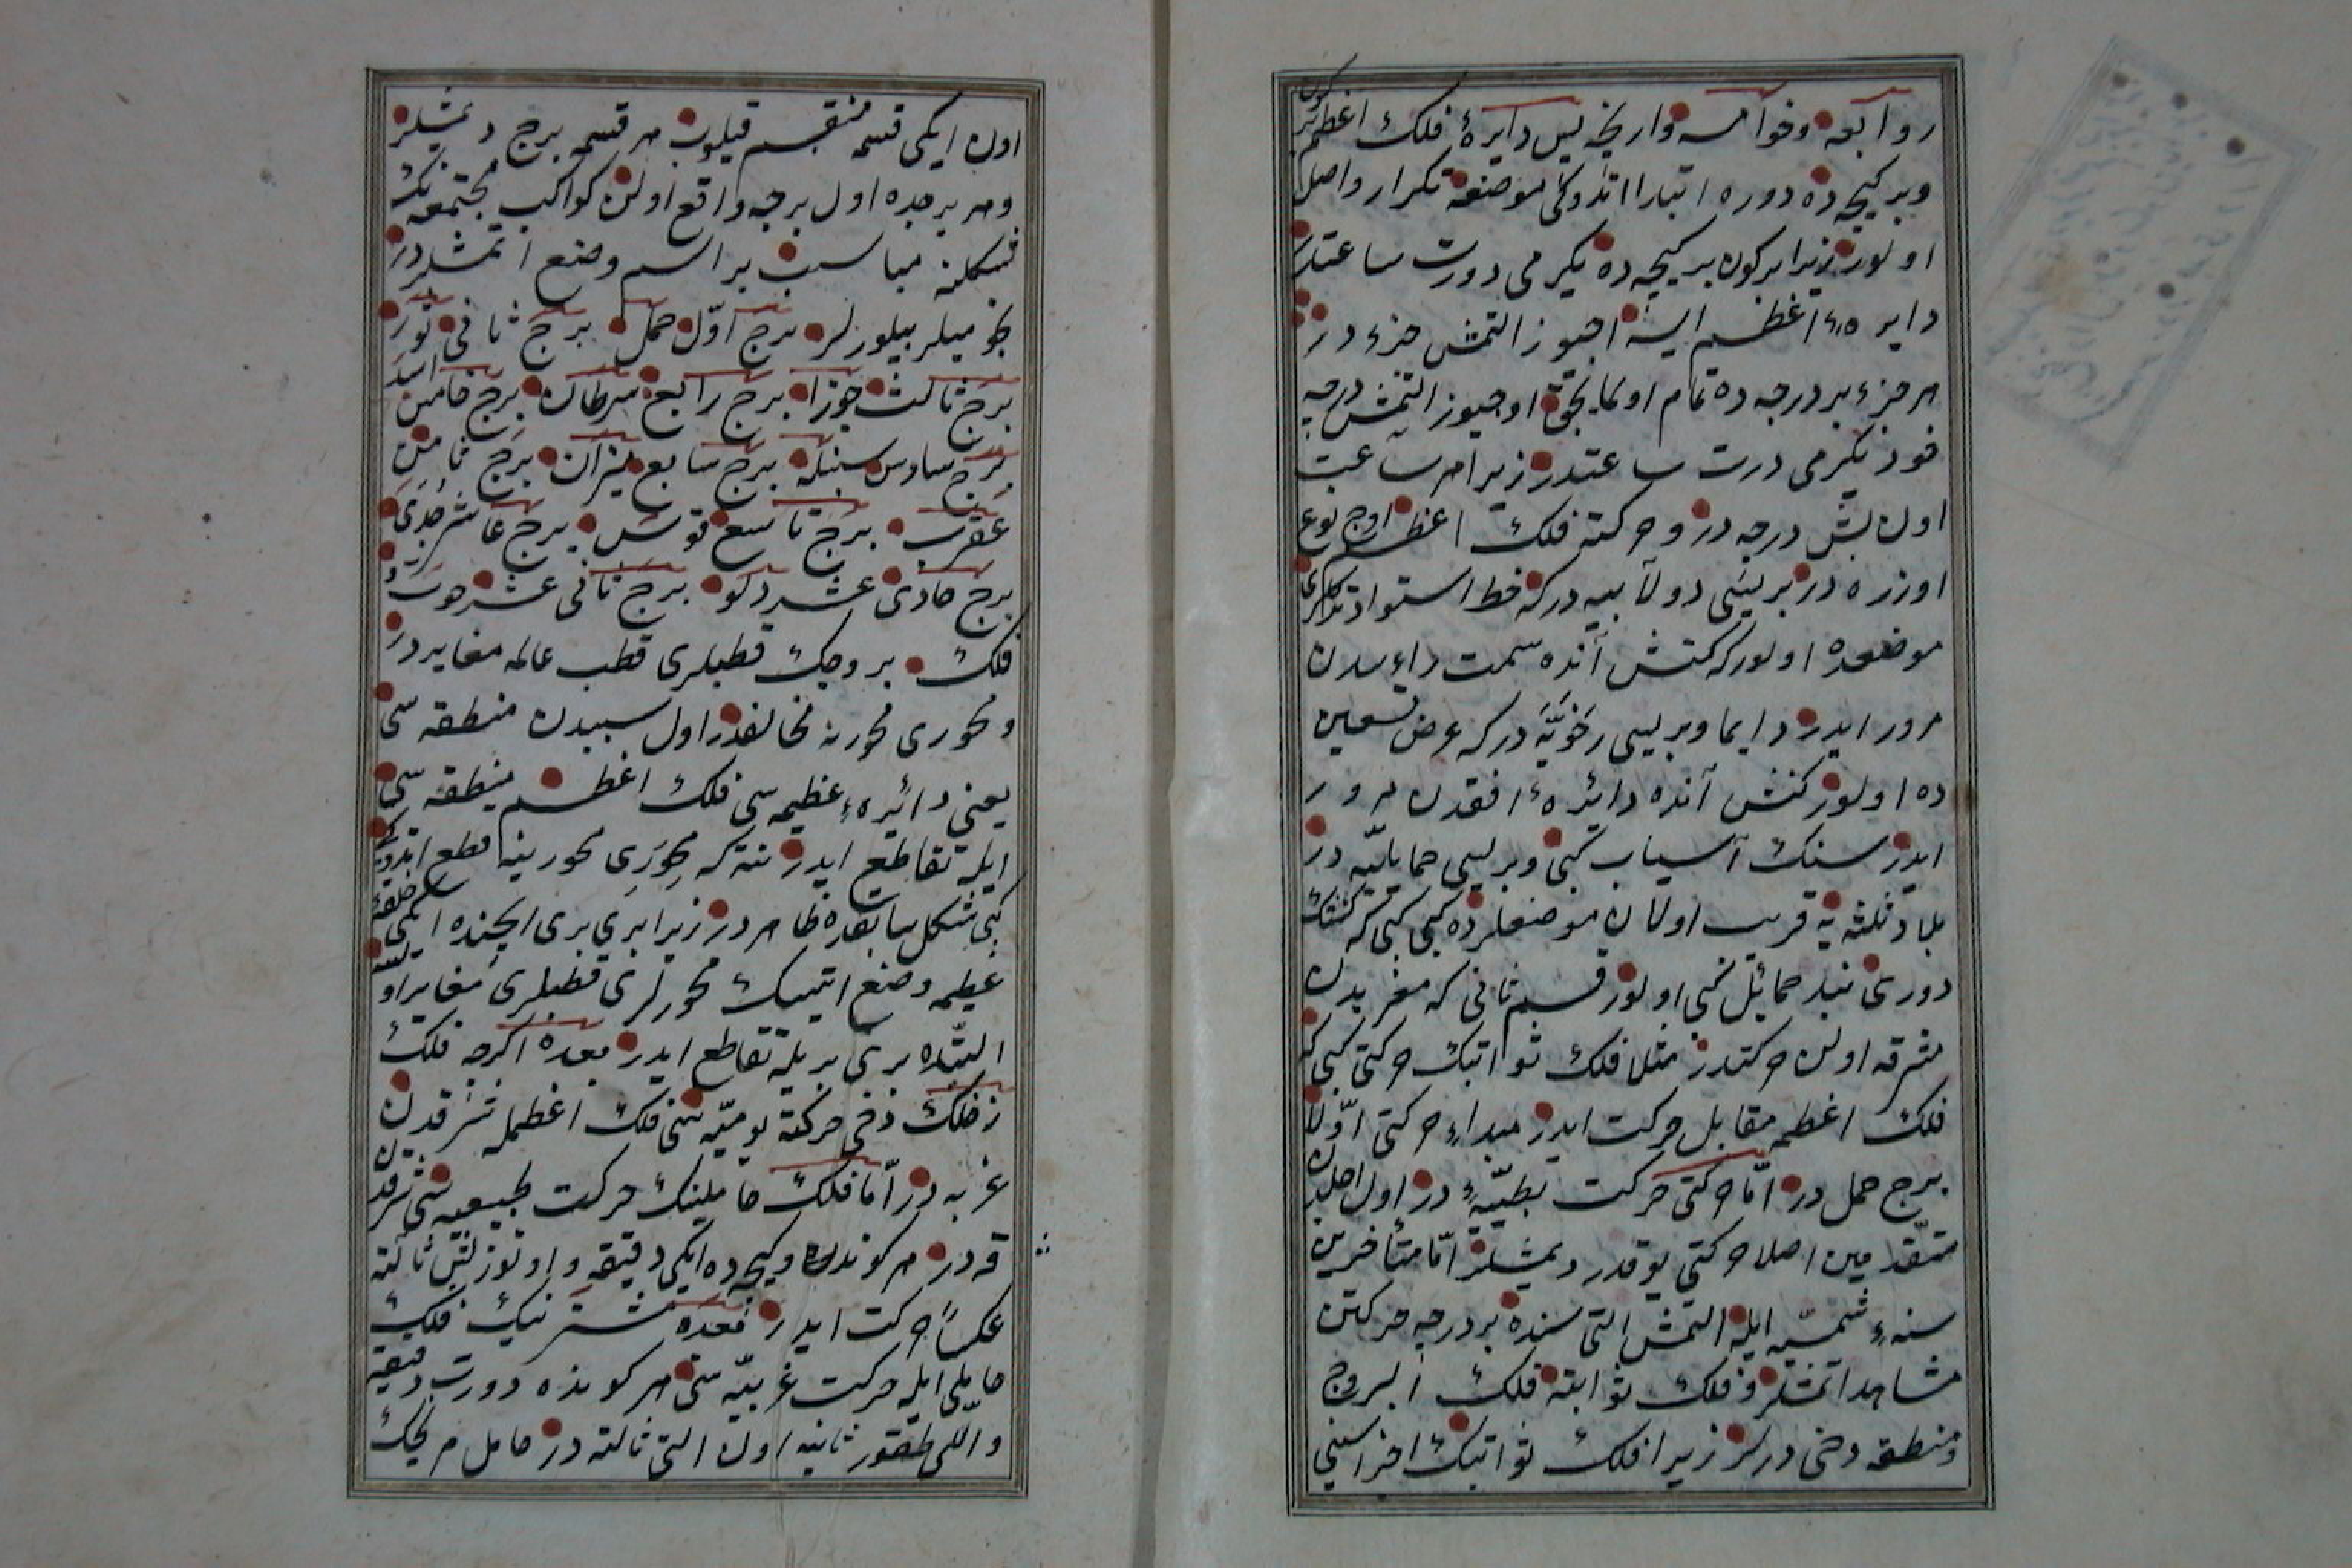 روابعه وخوامسه وارنجه پس دایرۀ فلك اعظم بر كون
وبر كیجه ده دوره ابتدا اتدوكی موضعه تكرار واصل
اولور زیرا بر كون بر كیجه ده یكرمی دورت ساعتدر
دایره ٔ اعظم ایسه اوجیوز التمش جزء در
هر جزء بر درجه ده تمام اولمایجق اوجیوز التمش درجه
خود یكرمی درت ساعتدر زیرا هر ساعت
اون بش درجه در وحركت فلك اعظم اوج نوع
اوزره در بریسی دولابیه دركه خط استواده
موضعده اولور كه كنش آنده سمت راءسدن
مرور ایدر دایما وبریسی رَحَوِیَّه دركه عرض تسعین
ده اولور كنش آنده دائره ٔ افقدن مرور
ایدر سنك آسیاب كبی وبریسی حمایلیّه در
بلاد ثلثه یه قریب اولان موضعلرده كبی كه كنشك
دوری بند حمائل كبی اولور قسم ثانی كه مغربدن
مشرقه اولن حركتدر مثلا فلك ثوابتك حركتی كبی كه
فلك اعظمه مقابل حركت ایدر مبداء حركتی اوّلا
برج حمل در امّا حركتی حركت بطیّهء در اول اجلدن
متقدمین اصلا حركتی یوقدر دیمشلر امّا متأخرین
سنهء شمسیّه ایله التمش التی سنده بر درجه حركتن
مشاهده اتمشلر وفلك ثوابته فلك البروج
ومنطقه دخی درلر زیرا فلك ثوابتك اجزاسنی
اون ایكی قسمه منقسم قیلوب هر قسمه برج دیمشلر
وهر برجده اول برجه واقع اولن كواكب مجتمعه نك
شكلنه مناسب بر اسم وضع اتمشلردر
نجومیلر بیلورلر برج اوّل حمل برج ثانی ثور
برج ثالث جوزا برج رابع سرطان برج خامس اسد
برج سادس سنبله برج سابع میزان برج ثامن
عقرب برج تاسع قوس برج عاشر جدی
برج حادی عشر دلو برج ثانی عشر حوتدر
فلك بروجك قطبلری قطب عالمه مغایردر
ومحوری محورینه مخالفدر اول سببدن منطقه سی
یعنی دائره ٔ عظیمه سی فلك اعظم منطقه سی
ایله تقاطع ایدر نته كه محوری محورینه قطع ایتدوكی
كبی شكل سابقده ظاهر در زیرا بری بری ایچنده ایكی حلقۀ
عظیمه وضع اتسك محورلری قطبلری مغایر اولسه
البتّه بری بریله تقاطع ایدر بعده اكرچه فلك
زحلك دخی حركة یومیّه سی فلك اعظمله شرقدن
غربه در امّا فلك حاملینك حركت طبیعیه سی غربدن شرقه
در هر كونده وكیجه ده ایكی دقیقه و اوتوز بش ثالثه
عكسًا حركت ایدر فبعده مشترینك فلك
حاملی ایله حركت غربیّه سی هر كونده دورت دقیقه
واللی طقوز ثانیه اون التی ثالثه در حامل مریخك